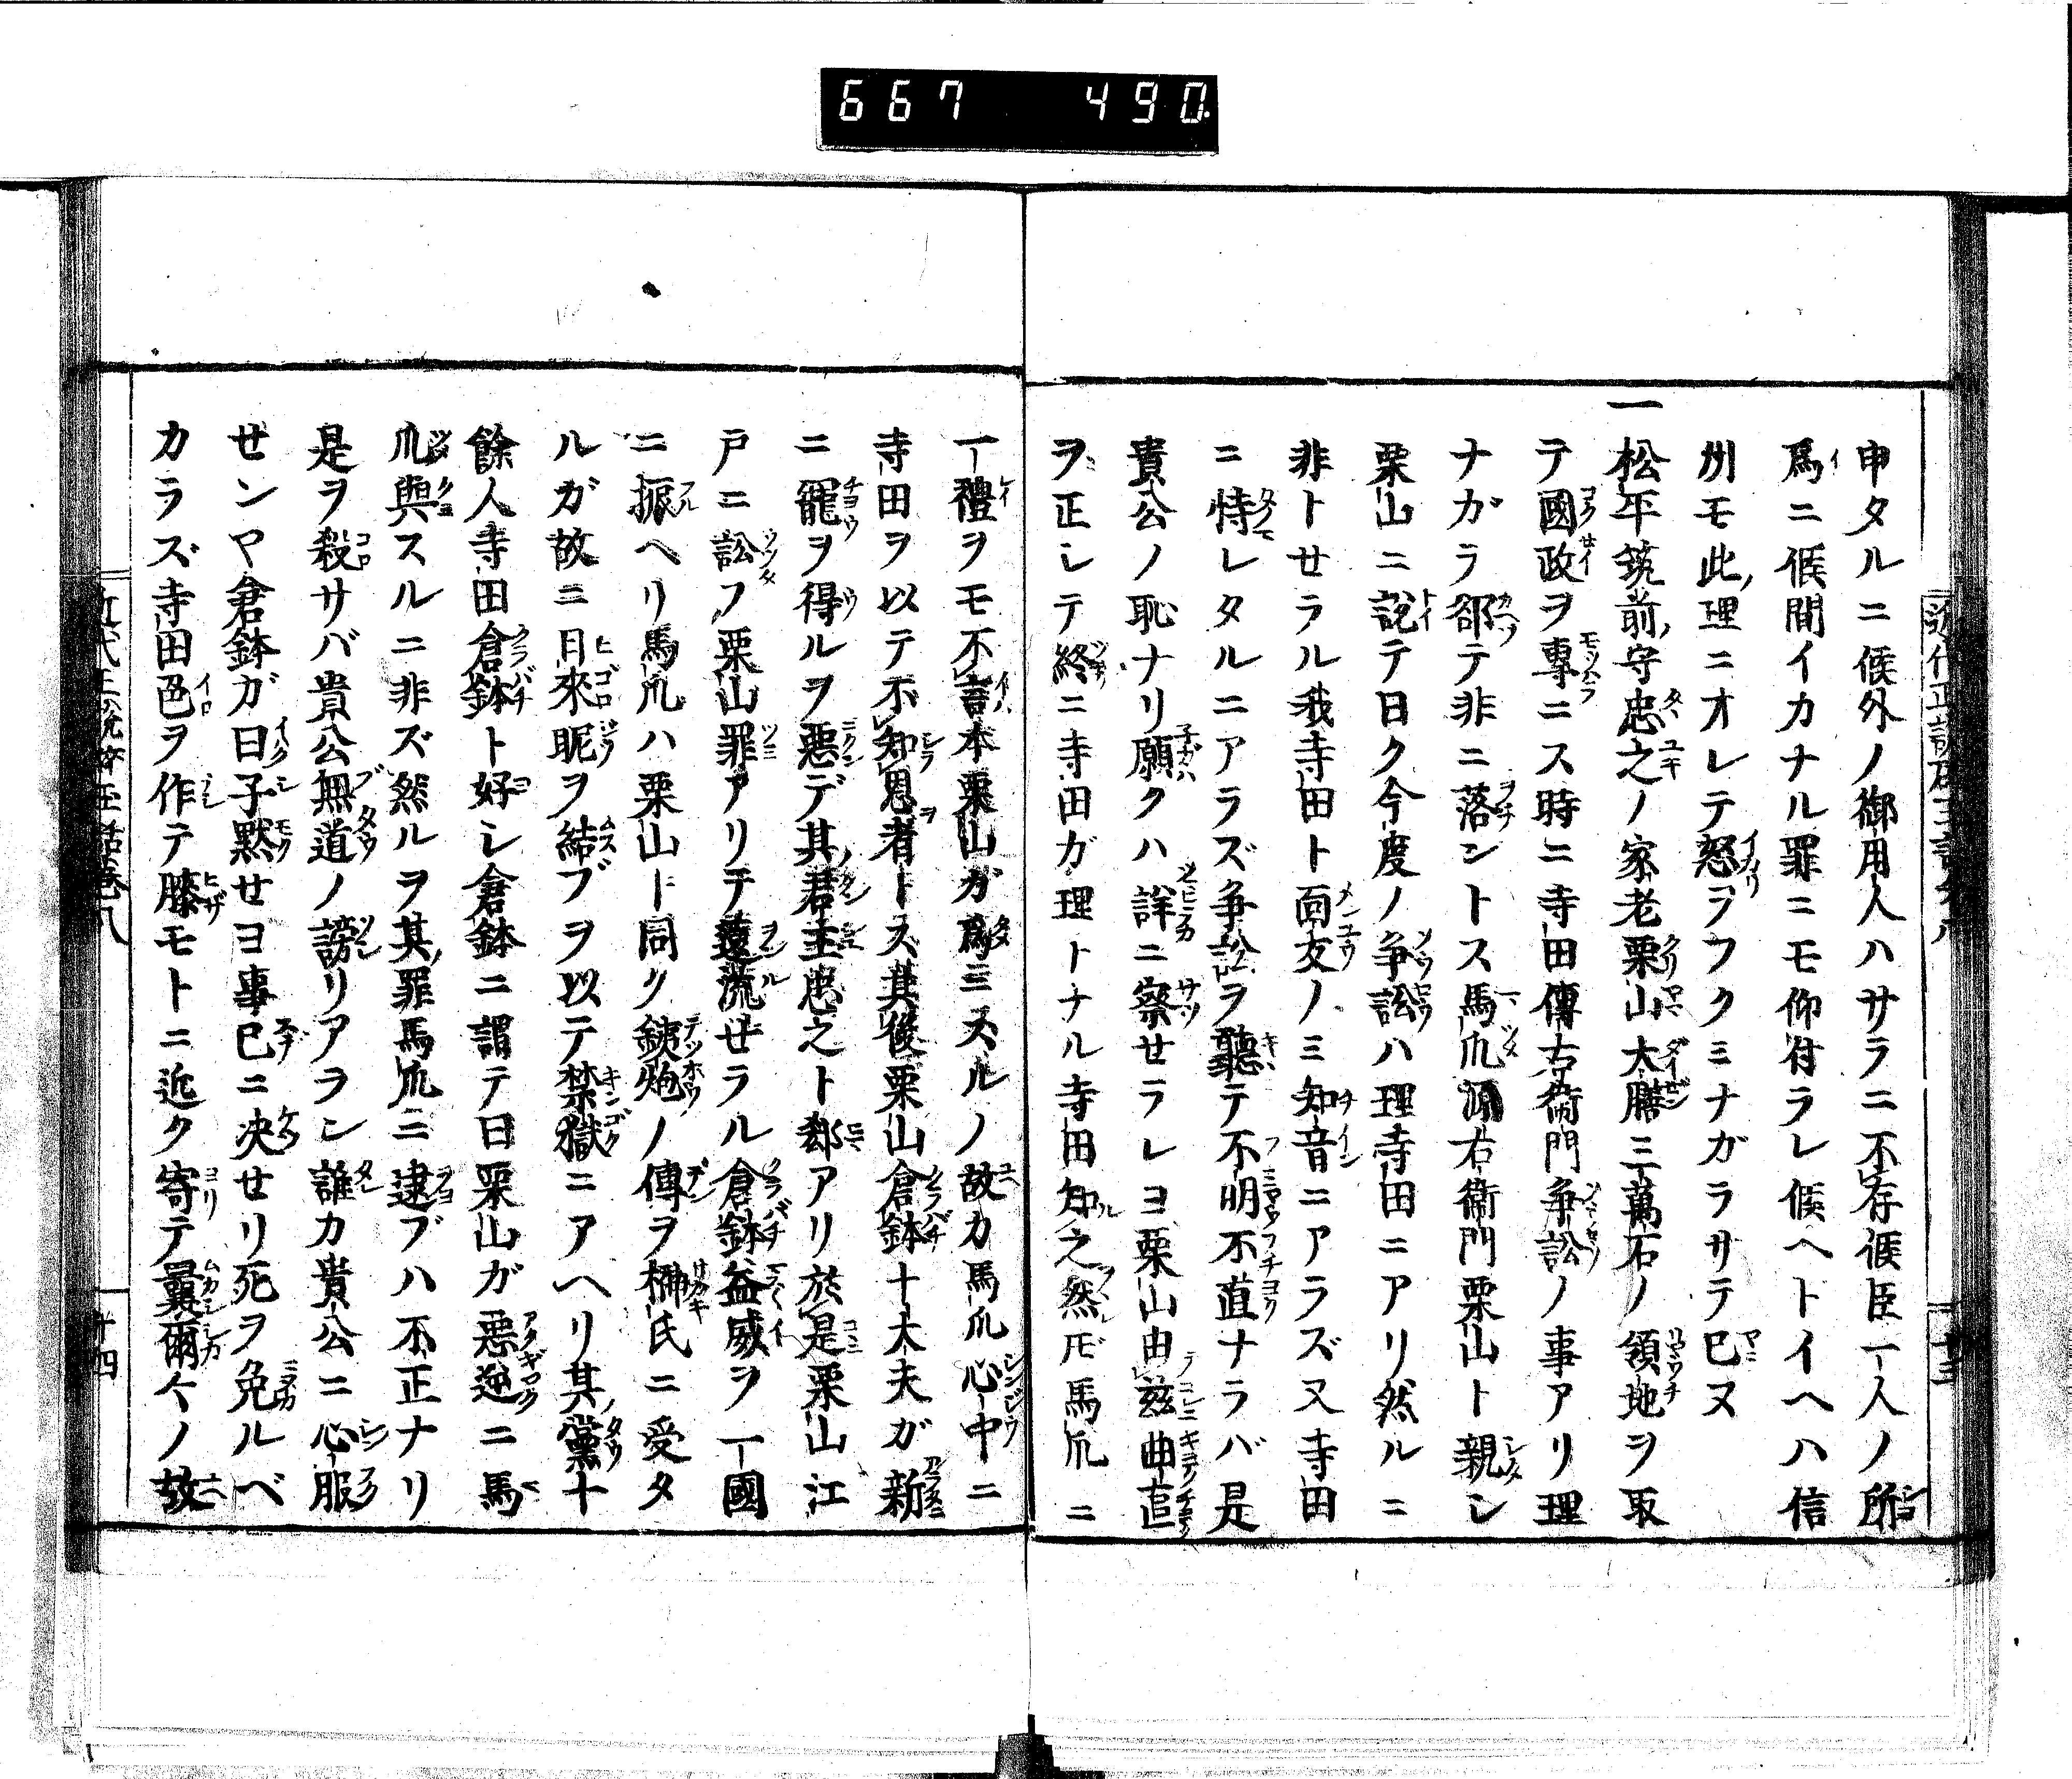 667 490
申タルニ候外ノ御用人ハサラニ不存候臣一人ノ所
為ニ候間イカナル罪ニモ仰付ラレ候ヘトイヘハ信
州モ此理ニオレテ怒ヲフクミナガラサテ巳ヌ
一松平筑前守忠之ノ家老栗山大膳三萬石ノ領地ヲ取
テ國政ヲ專ニス時ニ寺田傳右衛門争訟ノ事アリ理
ナガラ郤テ非ニ落ントス馬爪源右衛門栗山ト親シ
栗山ニ説テ曰ク今度ノ争訟ハ理寺田ニアリ然ルニ
非トせラル我寺田ト面友ノミ知音ニアラズ又寺田
ニ恃レタルニアラズ争訟ヲ聽テ不明不直ナラバ是
貴公ノ恥ナリ願クハ詳ニ察せラレヨ栗山由茲曲直
ヲ正シテ終ニ寺田ガ理トナル寺田知之然𪜈馬爪ニ
一禮ヲモ不言本栗山ガ為ニスルノ故カ馬爪心中ニ
寺田ヲ以テ不知恩者トス其後栗山倉鉢十太夫ガ新
ニ寵ヲ得ルヲ惡デ其君主忠之ト郄アリ於是栗山江
戸ニ訟フ栗山罪アリテ遠流せラル倉鉢益威ヲ一國
ニ振ヘリ馬爪ハ栗山ト同ク銕炮ノ傳ヲ榊氏ニ受タ
ルガ故ニ日來昵ヲ結ブヲ以テ禁獄ニアヘリ其黨十
餘人寺田倉鉢ト好シ倉鉢ニ謂テ曰栗山ガ惡逆ニ馬
爪與スルニ非ズ然ルヲ其罪馬爪ニ逮ブハ不正ナリ
是ヲ殺サバ貴公無道ノ謗リアラン誰カ貴公ニ心服
せンヤ倉鉢ガ曰子黙せヨ事巳ニ决せリ死ヲ免ルベ
カラズ寺田色ヲ作テ膝モトニ近ク寄テ曩爾𠆢ノ故
十四